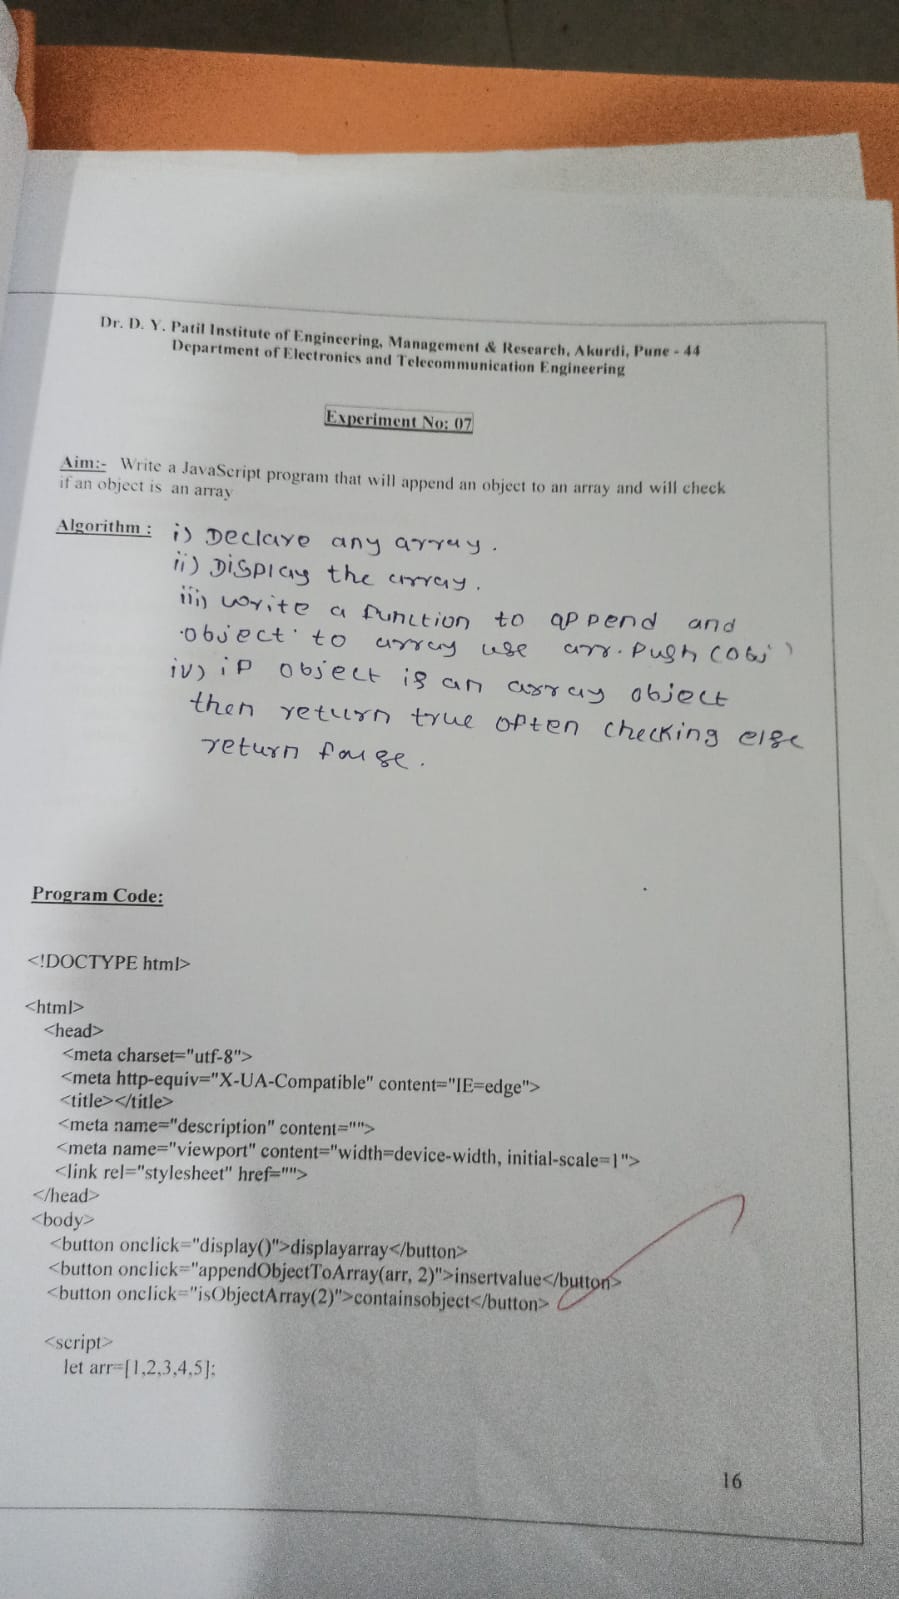 Dr. D. Y. Patil Institute of Engineering, Management & Research, Akurdi, Pune - 44
Department of Electronics and Telecommunication Engineering
Experiment No: 07
Aim:- Write a JavaScript program that will append an object to an array and will check
if an object is an array
Algorithm : i) Declare any array.
ii) Display the array.
iii) write a function to append and
object to array use arr.push(obj)
iv) if object is an array object
then return true often checking else
return false.
Program Code:
<!DOCTYPE html>
<html>
<head>
<meta charset="utf-8">
<meta http-equiv="X-UA-Compatible" content="IE=edge">
<title></title>
<meta name="description" content="">
<meta name="viewport" content="width=device-width, initial-scale=1">
<link rel="stylesheet" href="">
</head>
<body>
<button onclick="display()">displayarray</button>
<button onclick="appendObjectToArray(arr, 2)">insertvalue</button>
<button onclick="isObjectArray(2)">containsobject</button>
<script>
let arr=[1,2,3,4,5];
16